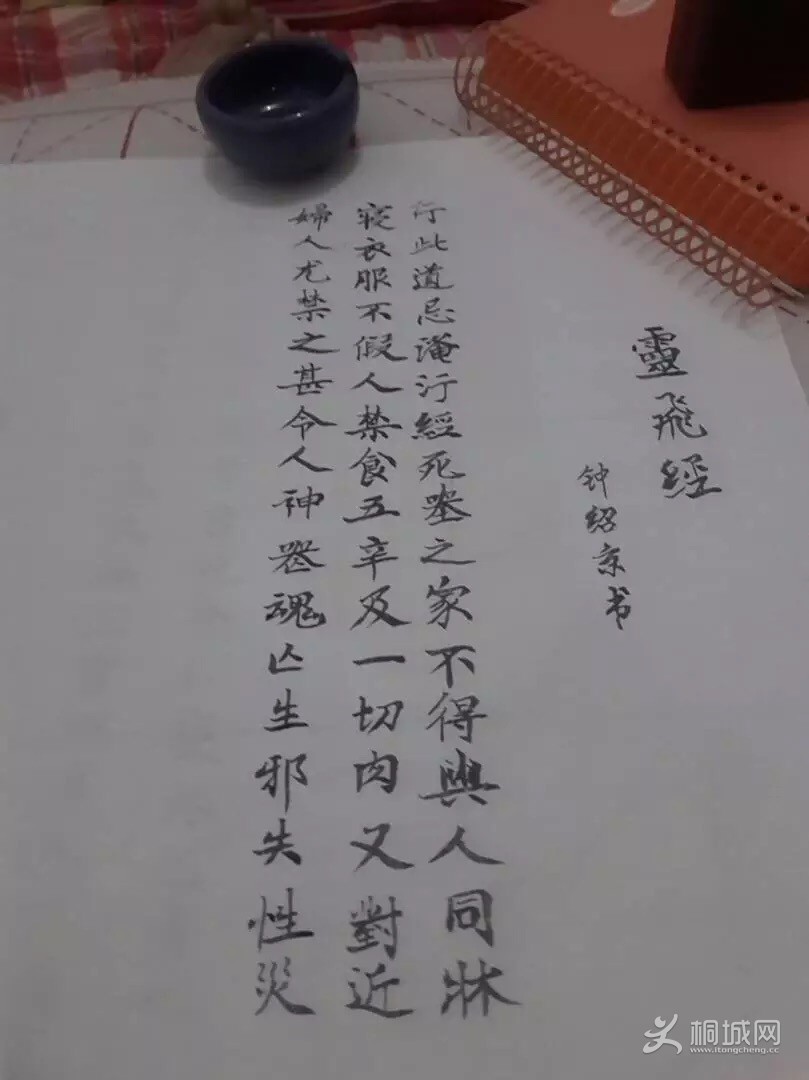 靈飛經
钟绍京书
行此道忌淹汙經死喪之家不得與人同牀
寢衣服不假人禁食五辛及一切肉又對近
婦人尤禁之甚令人神喪魂亡生邪失性災
桐城网
www.itongcheng.cc